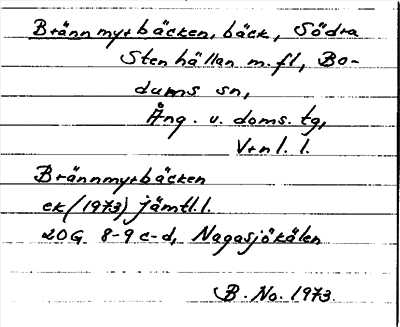 Brännmyrbäcken, bäck, Södra
Stenhällan m.fl, Bo-
dums sn,
Ång. v. doms. tg,
Vrnl. l.
Brännmyrbäcken
ek (1973) jämtl.l.
20G 8-9 c-d, Nagasjökälen
B. No. 1973.